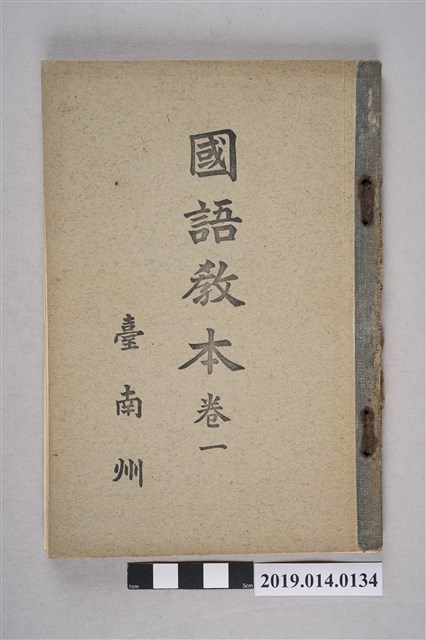 國語教本卷一
臺南州
5cm
5cm
2019.014.0134